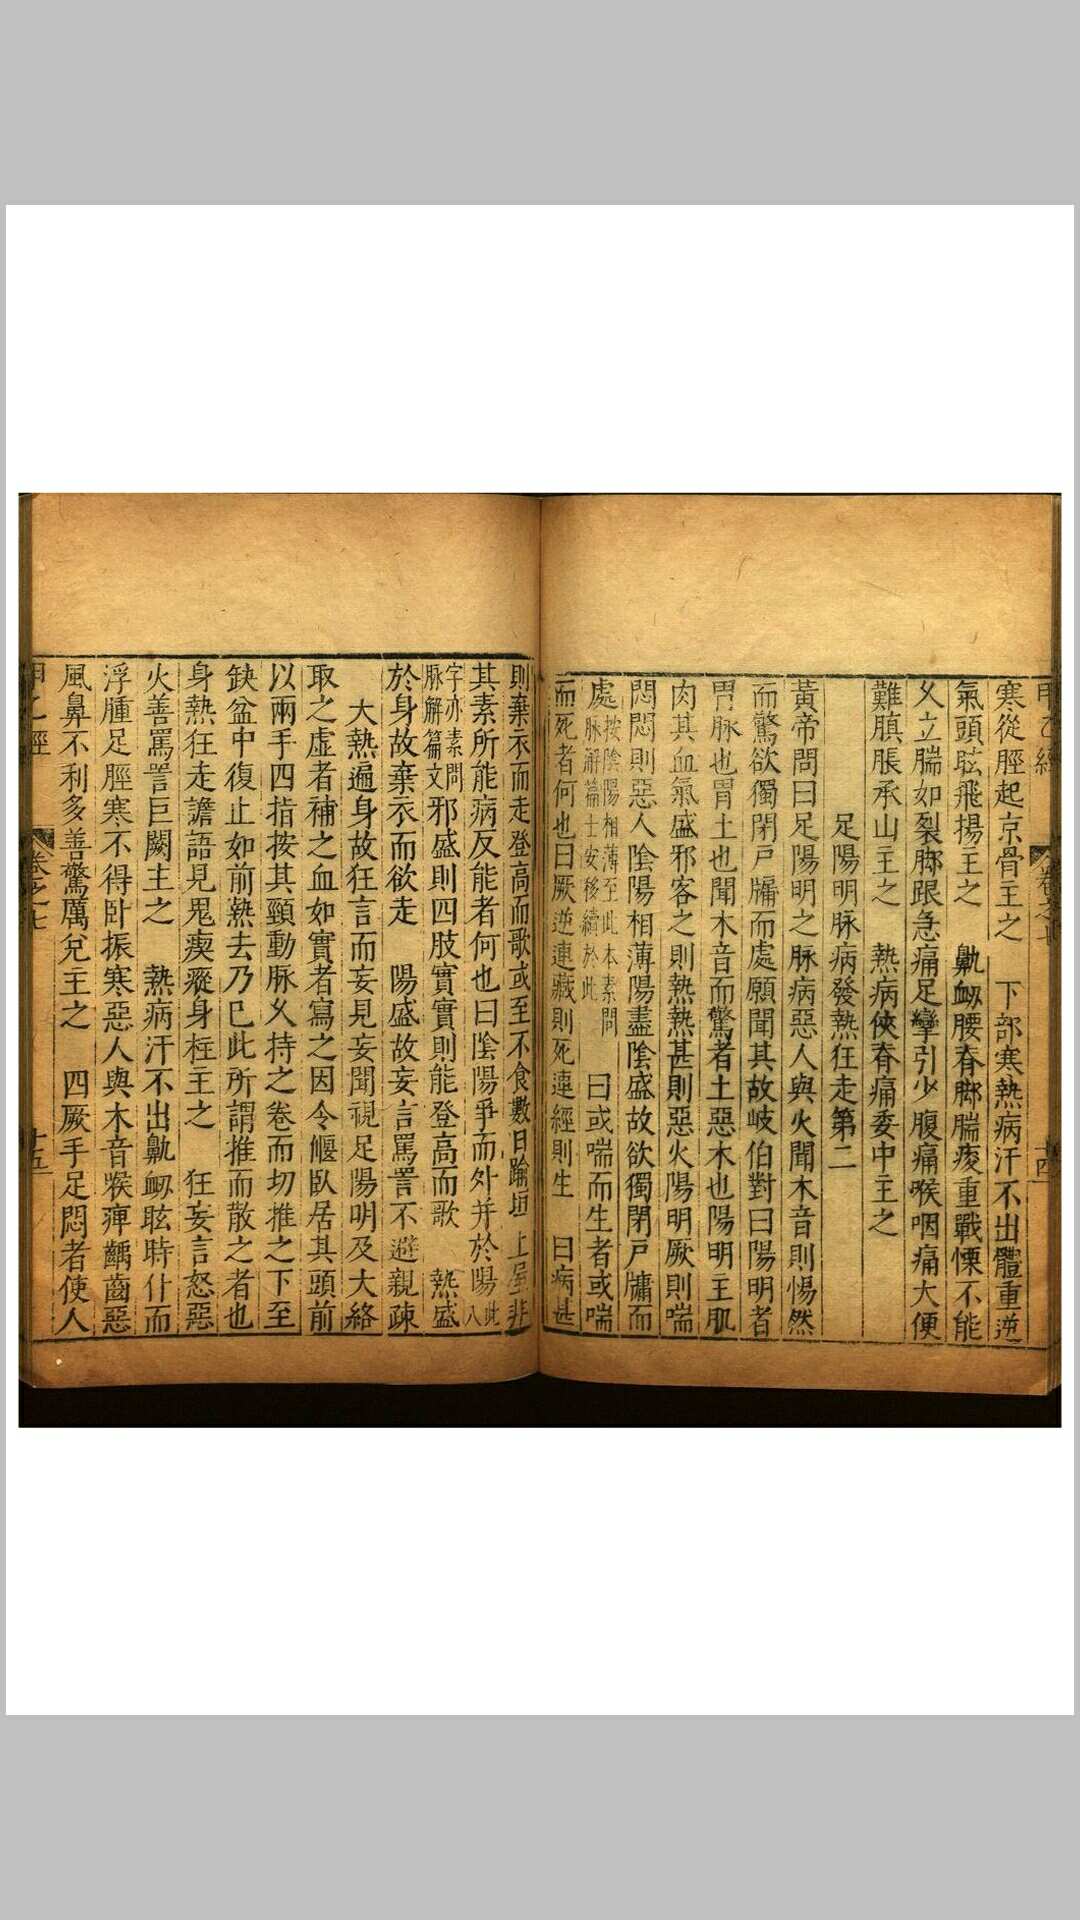 甲乙經 卷之七 十四
寒從脛起京骨主之 下部寒熱病汗不出體重逆
氣頭眩飛揚主之 鼽衄腰脊腳腨痠重戰慄不能
久立腨如裂腳跟急痛足攣引少腹痛喉咽痛大便
難䐜脹承山主之 熱病俠脊痛委中主之
足陽明脉病發熱狂走第二
黃帝問曰足陽明之脉病惡人與火聞木音則惕然
而驚欲獨閉戶牖而處願聞其故岐伯對曰陽明者
胃脉也胃土也聞木音而驚者土惡木也陽明主肌
肉其血氣盛邪客之則熱熱甚則惡火陽明厥則喘
悶悶則惡人陰陽相薄陽盡陰盛故欲獨閉戶牖而
處按陰陽相薄至此本素問脉解篇士安移續於此 曰或喘而生者或喘
而死者何也曰厥逆連藏則死連經則生 曰病甚
則棄衣而走登高而歌或至不食數日踰垣上屋非
其素所能病反能者何也曰陰陽爭而外并於陽此八
字亦素問脉解篇文邪盛則四肢實實則能登高而歌 熱盛
於身故棄衣而欲走 陽盛故妄言罵詈不避親疎
大熱遍身故狂言而妄見妄聞視足陽明及大絡
取之虛者補之血如實者寫之因令偃臥居其頭前
以兩手四指按其頸動脉久持之卷而切推之下至
缺盆中復止如前熱去乃已此所謂推而散之者也
身熱狂走譫語見鬼瘈瘲身柱主之 狂妄言怒惡
火善罵詈巨闕主之 熱病汗不出鼽衄眩時仆而
浮腫足脛寒不得卧振寒惡人與木音喉痺齲齒惡
風鼻不利多善驚厲兌主之 四厥手足悶者使人
甲乙經 卷之七 十五